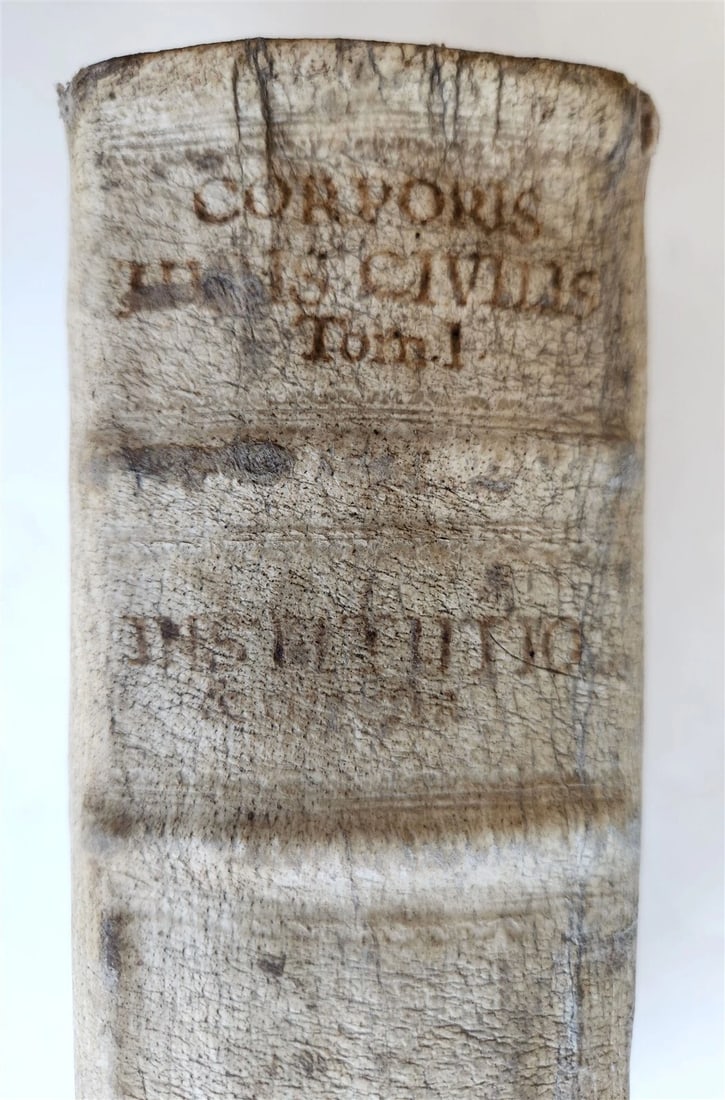 CORPORIS
JURIS CIVILIS
Tom. I
INSTITUTIO